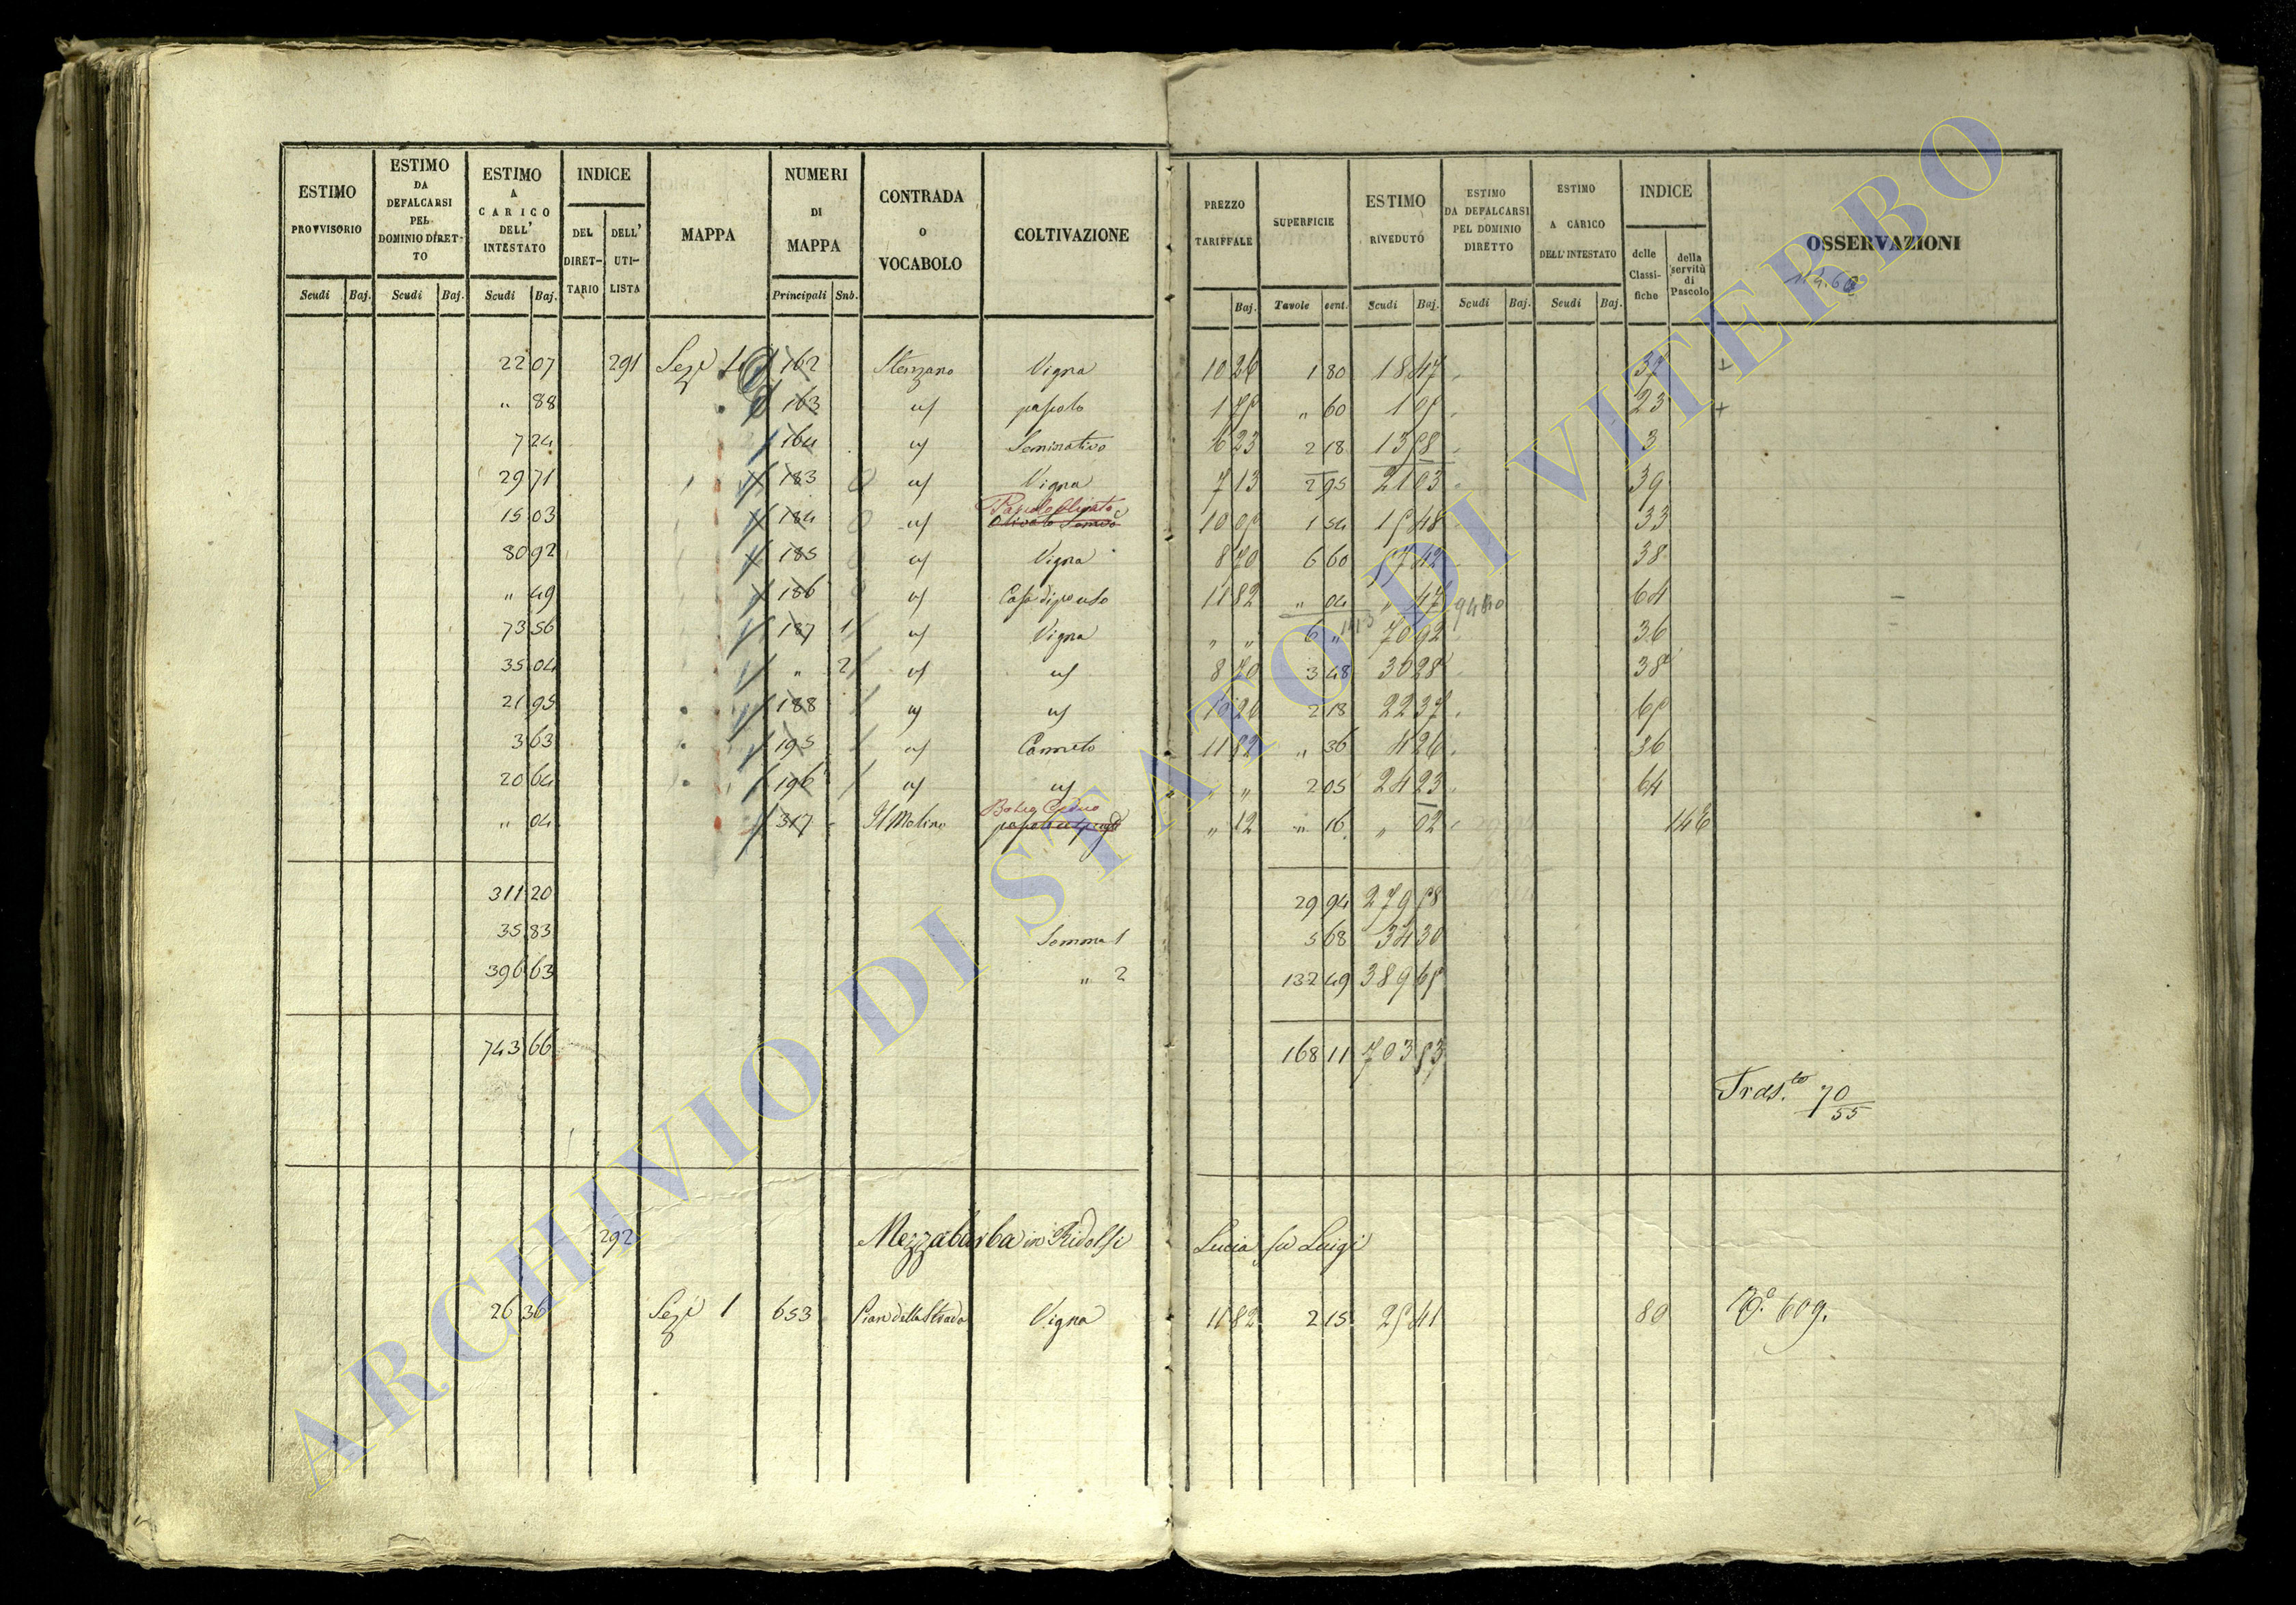 ESTIMO PROVVISORIO
ESTIMO DA DEFALCARSI PEL DOMINIO DIRET-TO
ESTIMO A CARICO DELL' INTESTATO
INDICE
DEL DIRET-TARIO
DELL' UTI-LISTA
MAPPA
NUMERI DI MAPPA
CONTRADA O VOCABOLO
COLTIVAZIONE
PREZZO TARIFFALE
SUPERFICIE
ESTIMO RIVEDUTO
ESTIMO DA DEFALCARSI PEL DOMINIO DIRETTO
ESTIMO A CARICO DELL'INTESTATO
INDICE
delle Classi-fiche
della servitù di Pascolo
OSSERVAZIONI
Scudi Baj. Scudi Baj. Scudi Baj. Principali Sub. Baj. Tavole cent. Scudi Baj. Scudi Baj. Scudi Baj.
22 07 291 Sezе 1 162 Stenzano Vigna 10 26 1 80 18 47 37 +
" 88 163 " pascolo 1 75 " 60 1 05 23 +
7 24 164 Seminativo 6 23 2 18 13 58 3
29 71 183 Vigna 7 13 2 95 21 03 39
Pascolo Olivato
15 03 184 Olivato 10 05 1 54 15 48 33
80 92 185 Vigna 8 70 6 60 57 42 38
" 49 186 11 82 " 04 " 47 64
73 56 187 1 Vigna " " 6 " 70 92 36
35 04 " 2 8 70 3 48 30 28 38
21 95 188 10 26 2 18 22 37 65
3 63 195 Canneto 11 82 " 36 4 26 36
20 64 196 " " 2 05 24 23 64
Bosco Ceduo
" 04 317 Il Molino " 12 " 16 " 02 146
311 20 29 94 279 58
35 83 Somma 1 5 68 34 30
396 63 " 2 132 49 389 65
743 66 168 11 703 53
Tras.to 70/55
292 Mezzabarba in Ridolfi Lucia fu Luigi
26 36 1 653 Pian della Strada Vigna 11 82 2 15 25 41 80 609.
ARCHIVIO DI STATO DI VITERBO